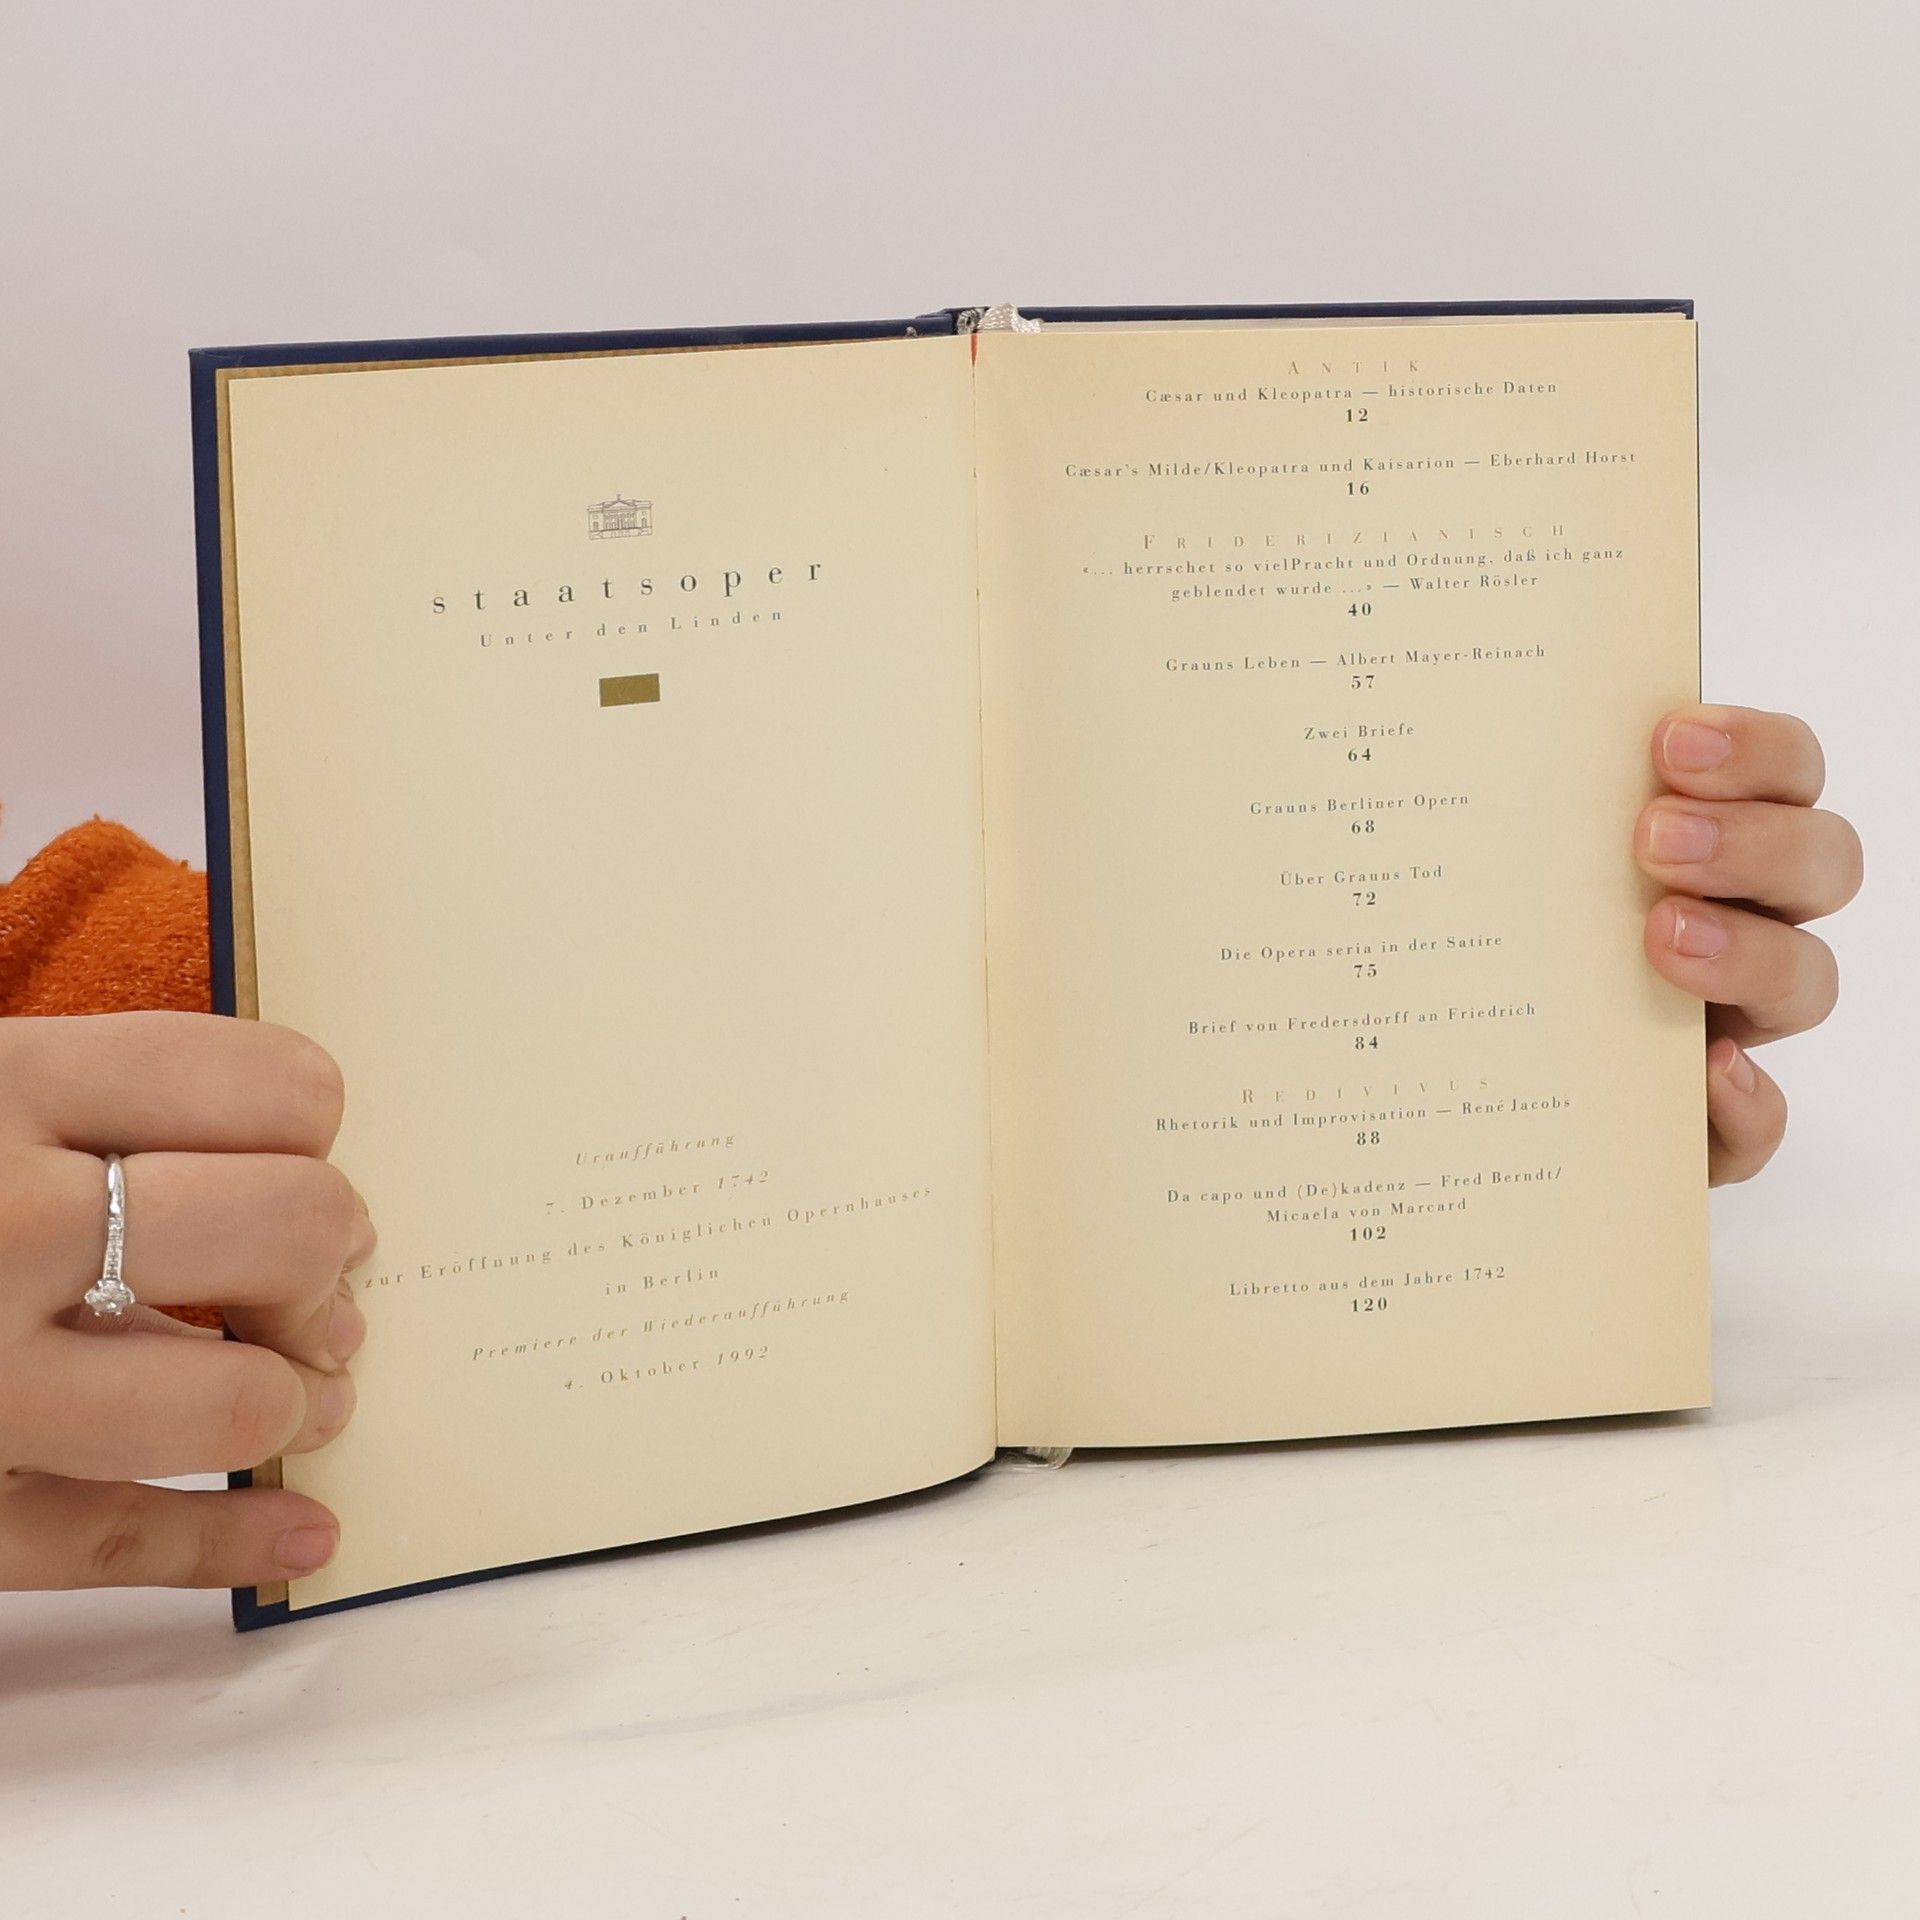 staatsoper
Unter den Linden
Uraufführung
7. Dezember 1742
zur Eröffnung des Königlichen Opernhauses
in Berlin
Premiere der Wiederaufführung
4. Oktober 1992
ANTIK
Cæsar und Kleopatra — historische Daten
12
Cæsar's Milde/Kleopatra und Kaisarion — Eberhard Horst
16
FRIDERIZIANISCH
«... herrschet so vielPracht und Ordnung, daß ich ganz
geblendet wurde ...» — Walter Rösler
40
Grauns Leben — Albert Mayer-Reinach
57
Zwei Briefe
64
Grauns Berliner Opern
68
Über Grauns Tod
72
Die Opera seria in der Satire
75
Brief von Fredersdorff an Friedrich
84
REDIVIVUS
Rhetorik und Improvisation — René Jacobs
88
Da capo und (De)kadenz — Fred Berndt/
Micaela von Marcard
102
Libretto aus dem Jahre 1742
120